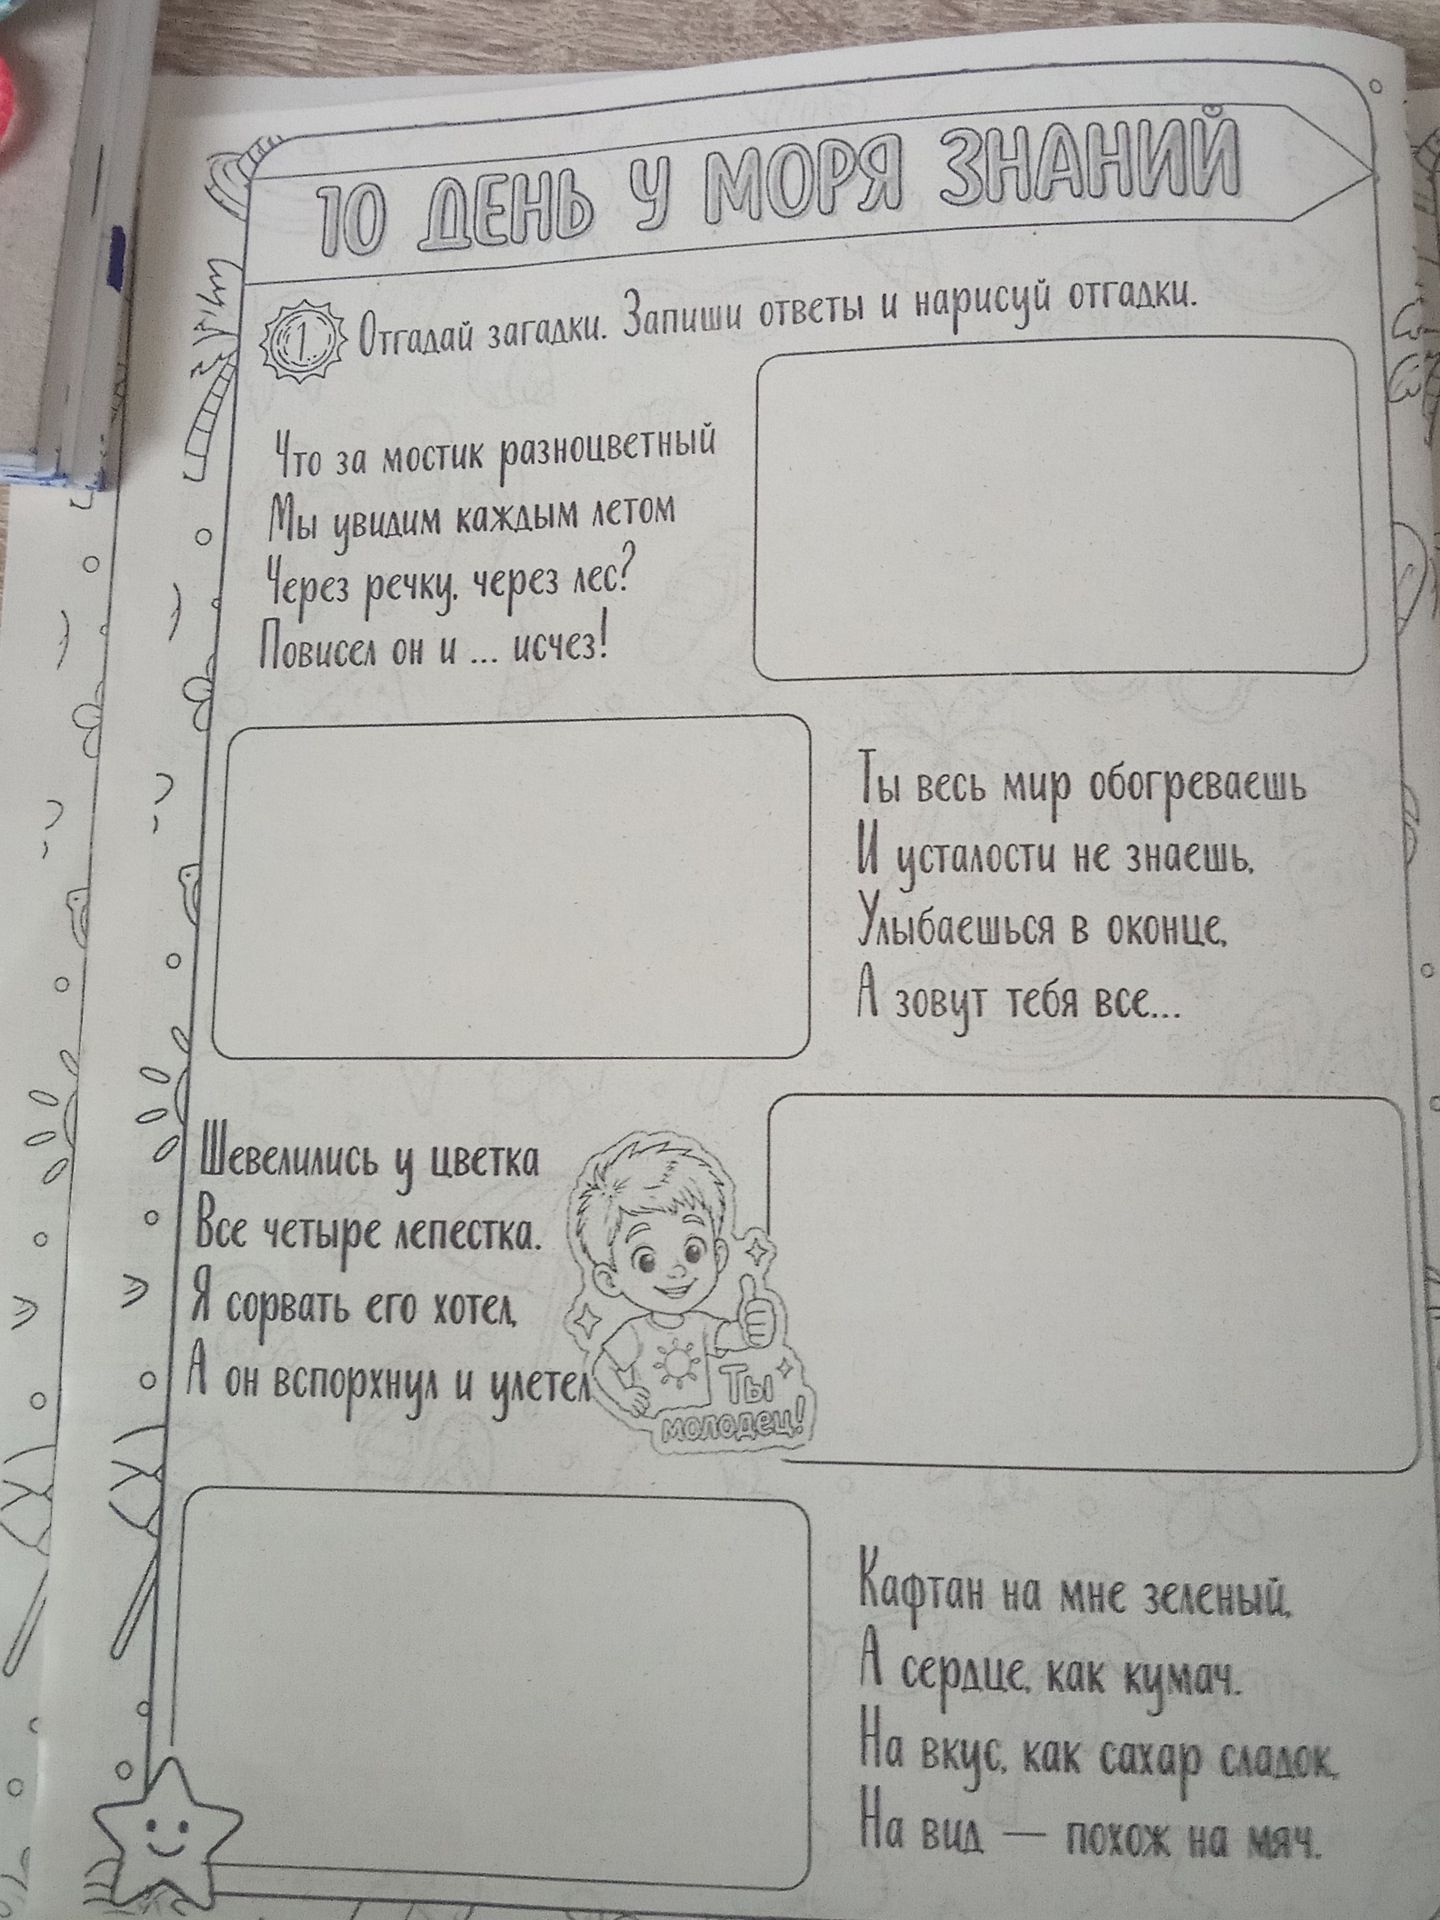 10 ДЕНЬ У МОРЯ ЗНАНИЙ
1. Отгадай загадки. Запиши ответы и нарисуй отгадки.
Что за мостик разноцветный
Мы увидим каждым летом
Через речку, через лес?
Повисел он и ... исчез!
Ты весь мир обогреваешь
И усталости не знаешь,
Улыбаешься в оконце,
А зовут тебя все...
Шевелились у цветка
Все четыре лепестка.
Я сорвать его хотел,
А он вспорхнул и улетел
Ты
молодец!
Кафтан на мне зеленый,
А сердце, как кумач.
На вкус, как сахар сладок,
На вид — похож на мяч.